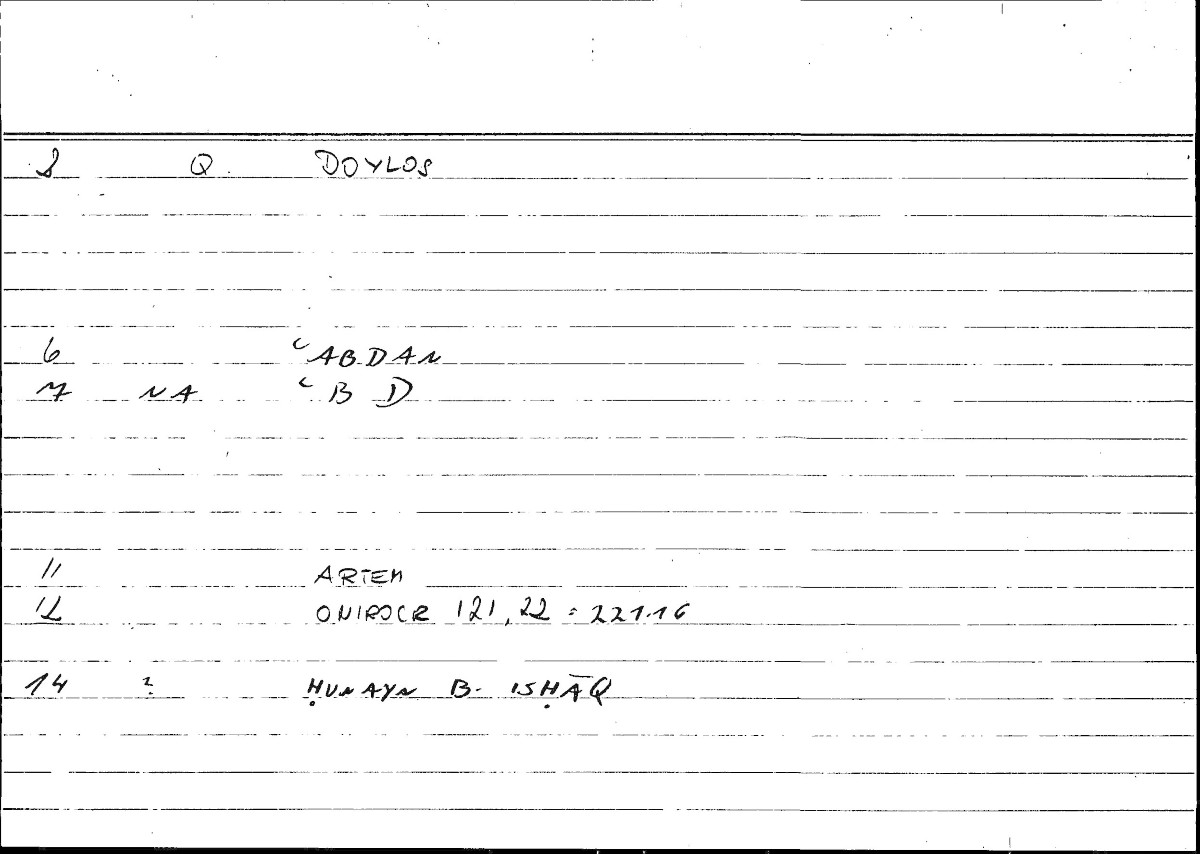 2 Q DOYLOS
6 ʿABDAN
7 NA ʿB D
11 ARTEM
12 ONIROCR 121,22 = 221.16
14 ? ḤUNAYN B. ISḤĀQ